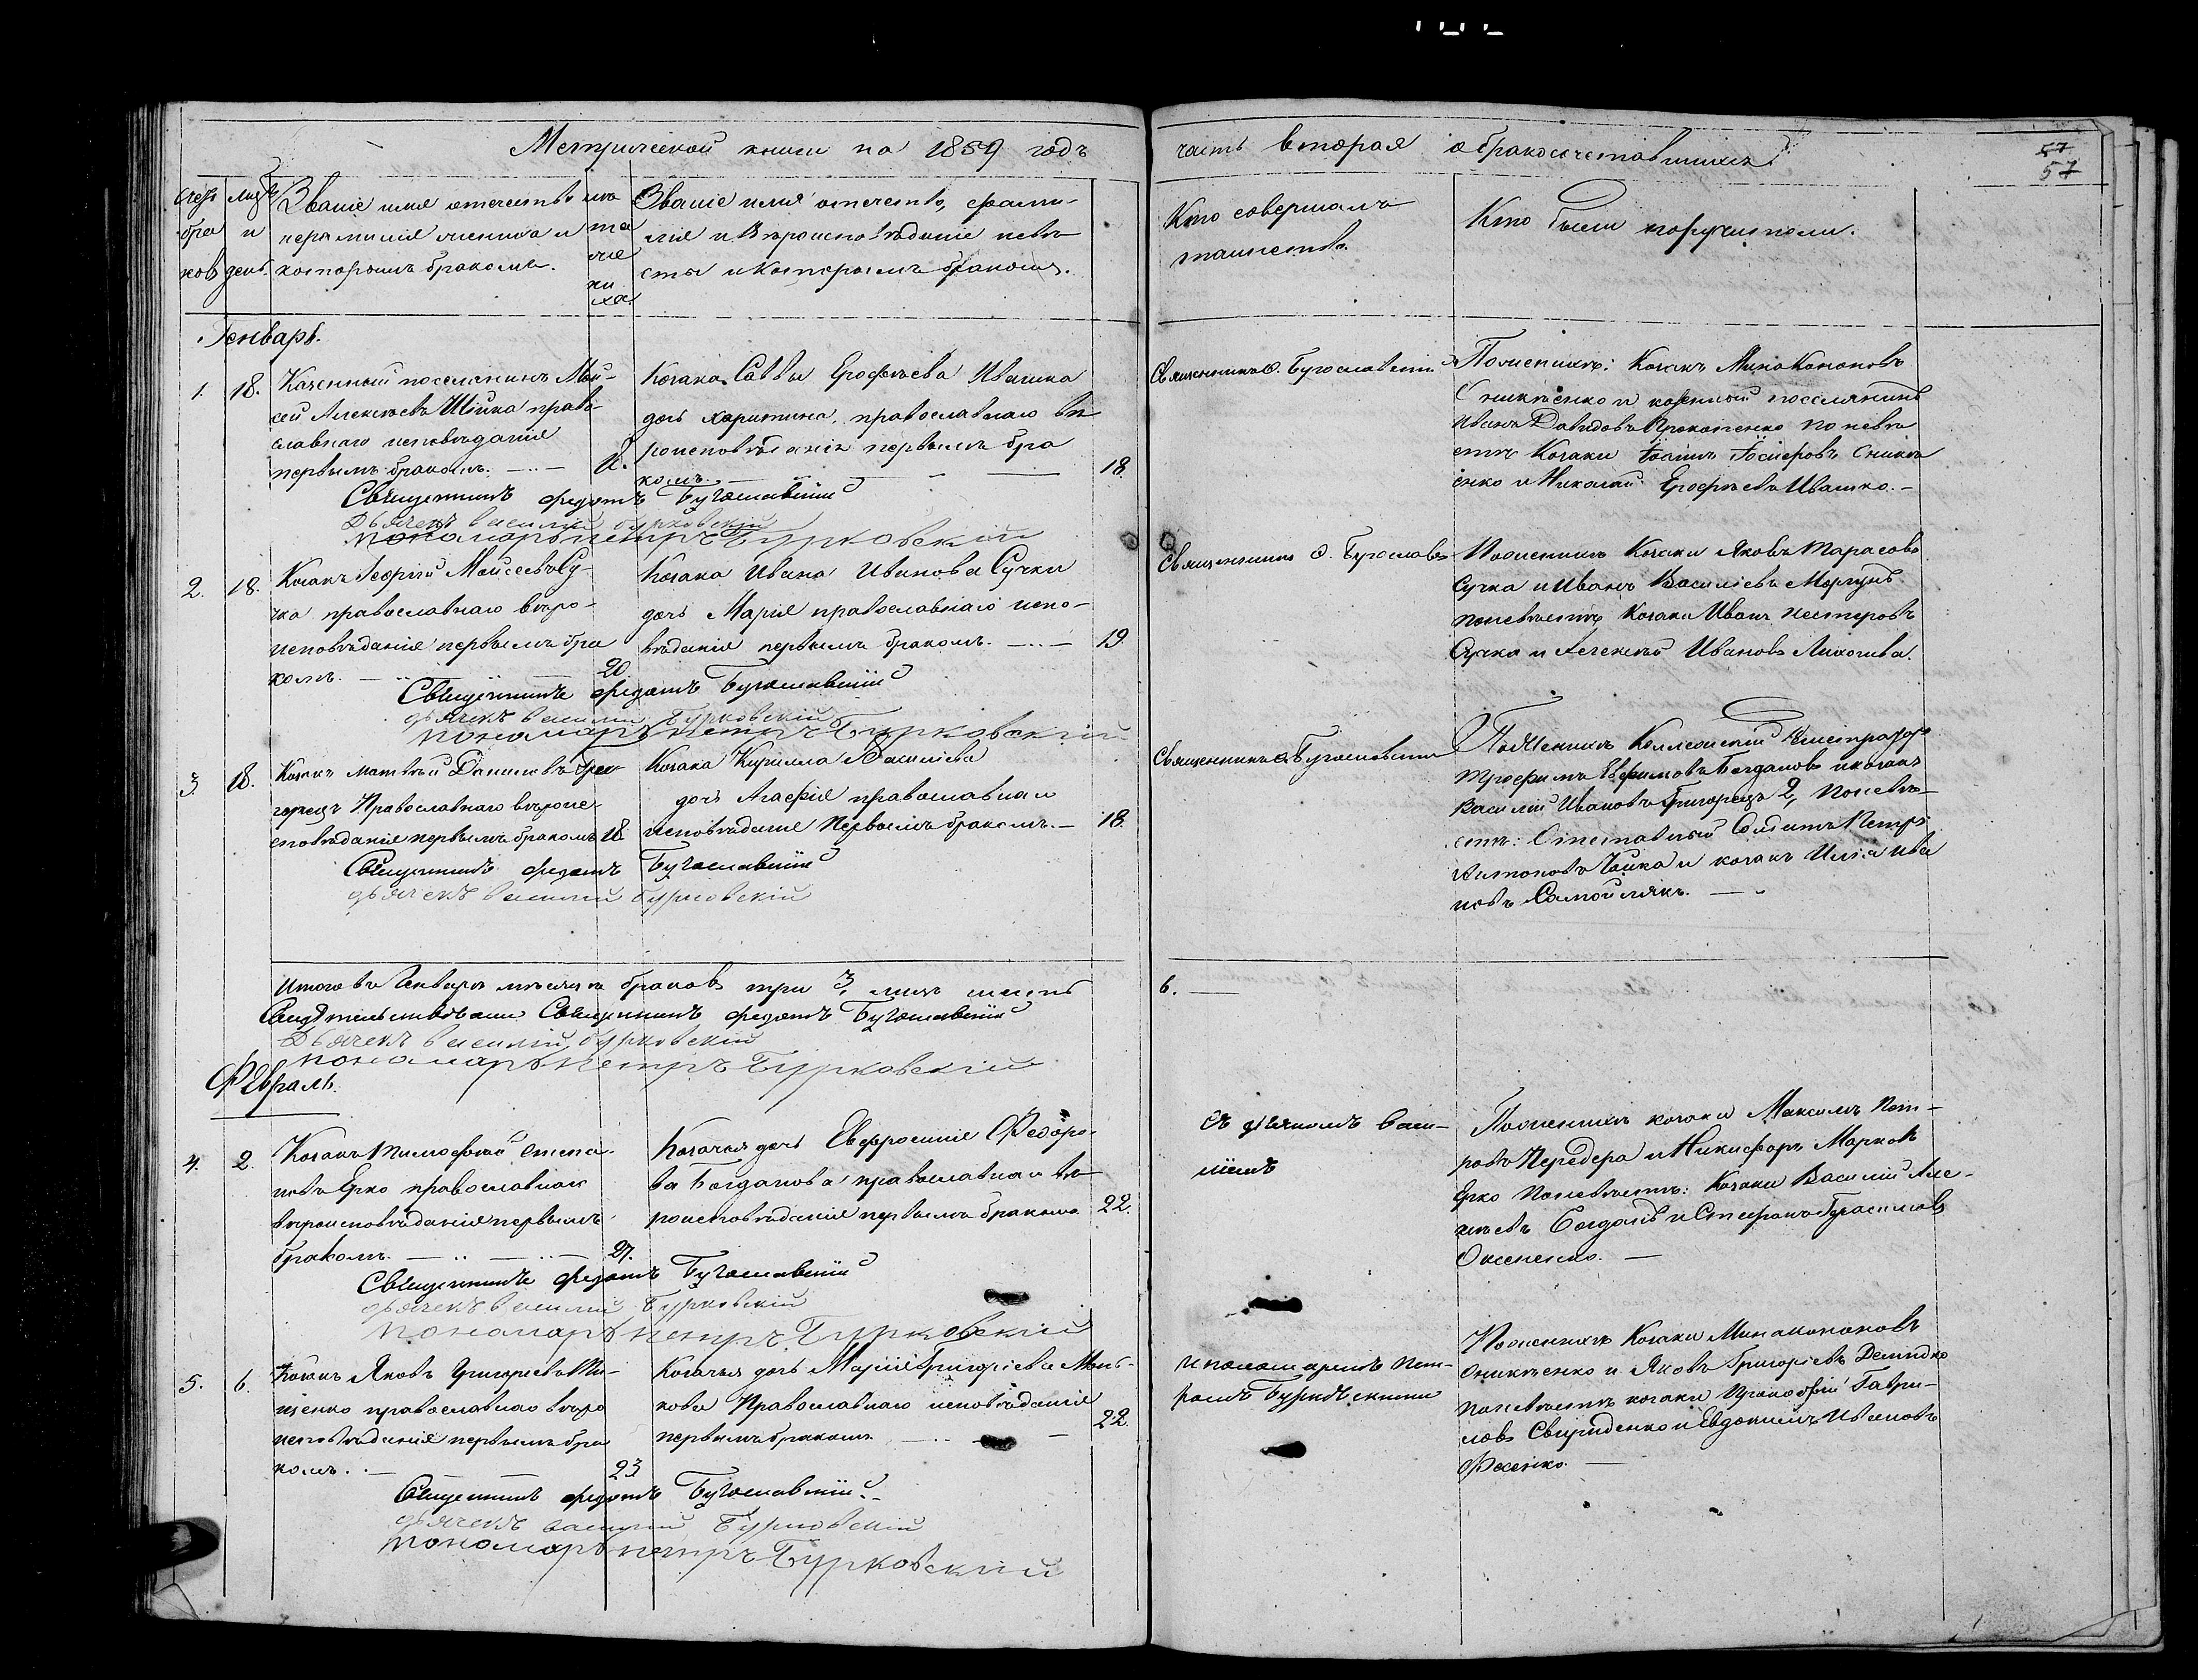 Метрической книги на 1859 годъ
часть вторая о бракосочетавшихся
57
57
Счетъ браковъ
Мѣсяцъ и день
Званіе имя отечество
фамилія жениха и
которымъ бракомъ.
лѣта жениха
Званіе имя отечество, фами-
лія и вѣроисповѣданіе невѣ-
сты и которымъ бракомъ.
Кто совершалъ
таинство.
Кто были поручители.
Генварь.
1.
18.
Казенный поселянинъ Мой-
сей Алексѣевъ Шійка право-
славнаго исповѣданія
первымъ бракомъ.
Козака Саввы Ерофѣева Ивашка
дочь Харитина, православнаго вѣ
роисповѣданія первымъ бра
комъ.
18.
Священникъ Ѳ. Бугославскій
По женихѣ: Козакъ Мина Кононовъ
Оникіенко и казенный поселянинъ
Иванъ Давидовъ Прокопенко по невѣ
стѣ Козаки
енко и Николай Ерофѣевъ Ивашко.
Священникъ Федотъ Бугославскій
Дьячекъ Василий Бурковскій
Пономарь Петръ Бурковскій
2.
18.
Козакъ Георгій Мойсеевъ Су-
чка православнаго вѣро-
исповѣданія первымъ бра
комъ.
20.
Козака Ивана Иванова Сучки
дочь Марія православнаго испо-
вѣданія первымъ бракомъ.
19.
Священникъ Ѳ. Бугославс
По женихѣ Козаки Яковъ Тарасовъ
Сучка и Иванъ Василіевъ Моргунъ
по невѣстѣ Козаки Иванъ Нестеровъ
Сучка и Алексѣй Ивановъ
Священникъ Федотъ Бугославскій
дьячекъ Василий Бурковскій
Пономарь Петръ Бурковскій
3.
18.
Козакъ Матвѣй Даниловъ Гри
горецъ Православнаго вѣроис-
повѣданія первымъ бракомъ
18
Козака Кирилла Василіева
дочь Агафія православнаго
исповѣданія Первымъ бракомъ.
18.
Священникъ Ѳ. Бугославскій
По Женихѣ Коллежскій Регистраторъ
Трофимъ Ефимовъ Богдановъ и козакъ
Василій Ивановъ Григорецъ 2, По невѣ-
стѣ: Отставный Солдатъ Петръ
Антоновъ Чайка и козакъ Илья Ива
новъ Самойлякъ.
Священникъ Федотъ Бугославскій
дьячекъ Василий Бурковскій
Итого въ Генварѣ мѣсяцѣ браковъ три 3, лицъ шесть
6.
Свидѣтельствовали Священникъ Федотъ Бугославскій
Дьячекъ Василий Бурковскій
Пономарь Петръ Бурковскій
Февраль.
4.
2.
Козакъ Тимофѣй Степа-
новъ Ерко православнаго
вѣроисповѣданія первымъ
бракомъ.
27.
Козачья дочь Евфросинія Федоро-
ва Богданова православнаго вѣ-
роисповѣданія первымъ бракомъ
22.
Съ дьячкомъ Васи-
ліемъ
По женихѣ козаки Максимъ Пет-
ровъ Передера и Никифоръ Марковъ
Ерко По невѣстѣ: Козаки Василій Але-
ксѣевъ Богданъ и Стефанъ Герасимовъ
Оксененко.
Священникъ Федотъ Бугославскій
дьячекъ Василий Бурковскій
Пономарь Петръ Бурковскій
5.
6.
Козакъ Яковъ Григорьевъ Ти-
щенко православнаго вѣро
исповѣданія первымъ бра
комъ.
23
Козачья дочь Марія Григоріева
кова Православнаго исповѣданія
первымъ бракомъ
22.
и пономаремъ Пет-
ромъ Бурковскимъ
По женихѣ Козаки Мина Кононовъ
Оникіенко и Яковъ Григоріевъ Демидко
По невѣстѣ козаки Прокофій Гаври-
ловъ Свириденко и Евдокимъ Ивановъ
Священникъ Федотъ Бугославскій.
дьячекъ Василий Бурковскій
Пономарь Петръ Бурковскій